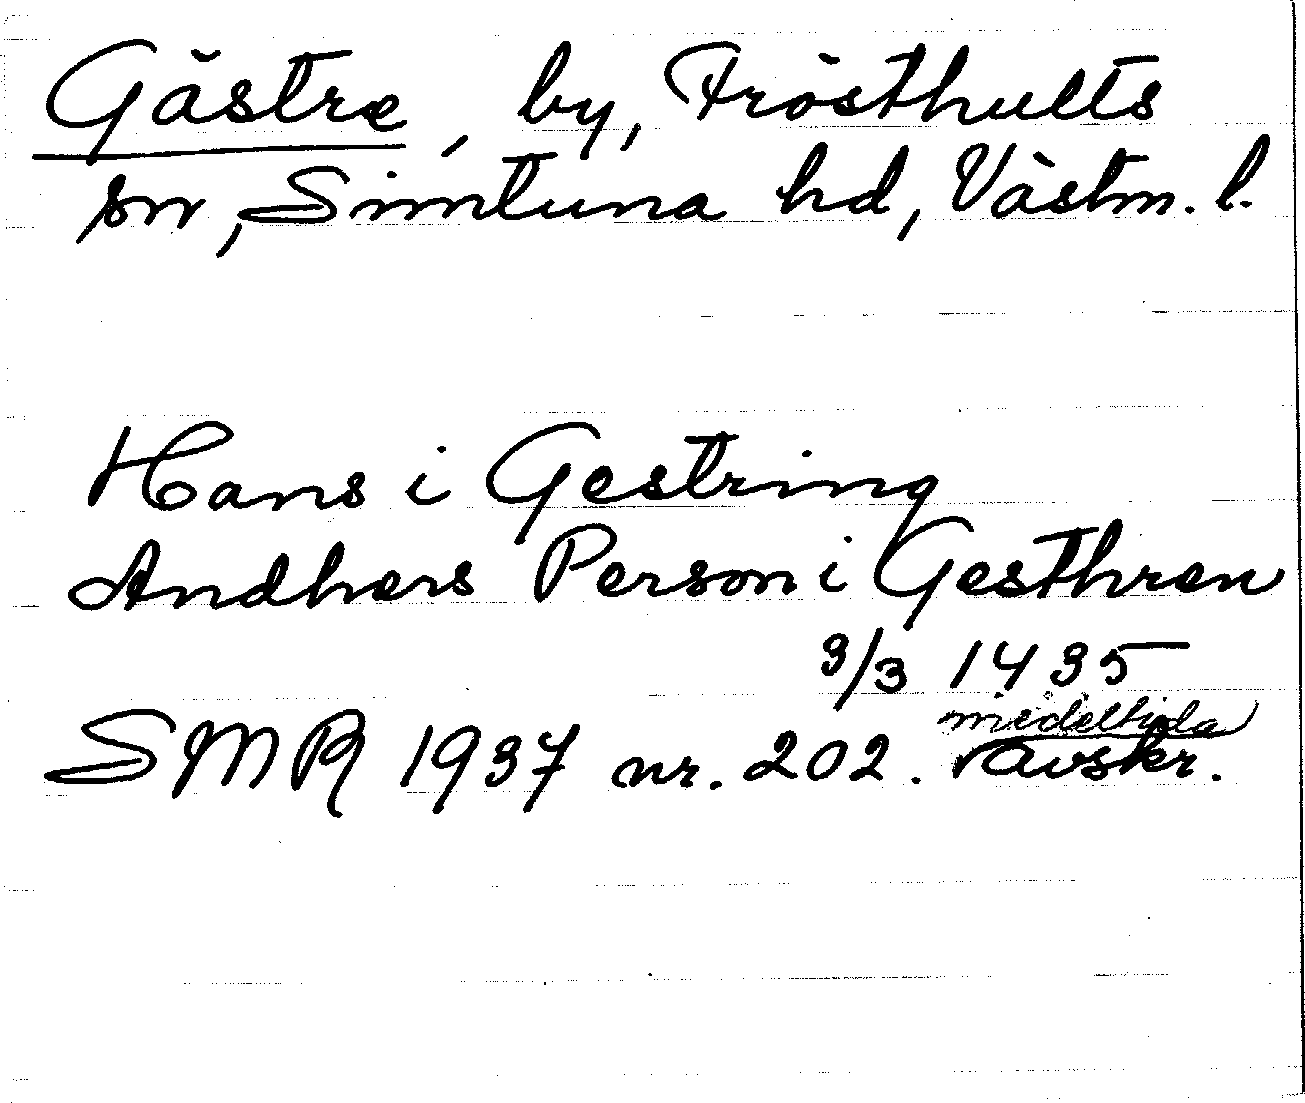 Gästre, by, Frösthults
sn, Simtuna hd, Västm. l.
Hans i Gestring
Andhers Person i Gesthren
3/3 1435
SMR 1937 nr. 202. medeltida avskr.